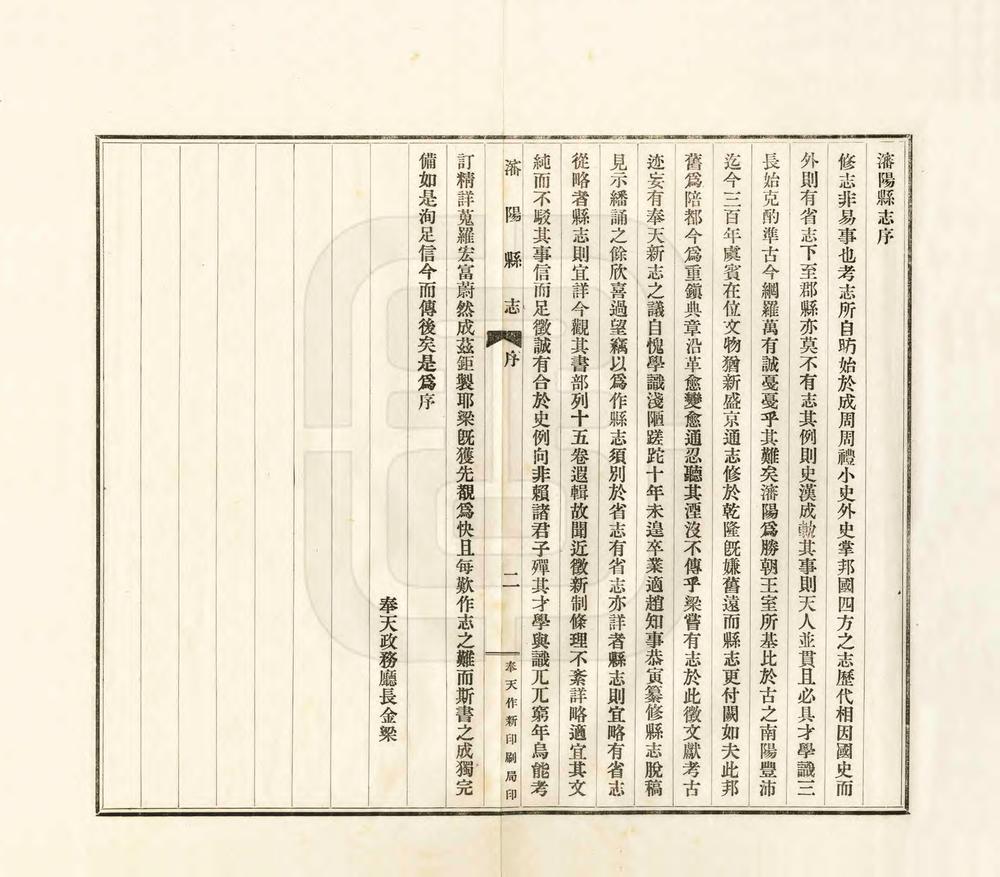 瀋陽縣志序
修志非易事也考志所自昉始於成周周禮小史外史掌邦國四方之志歷代相因國史而
外則有省志下至郡縣亦莫不有志其例則史漢成軌其事則天人並貫且必具才學識三
長始克酌準古今網羅萬有誠戞戞乎其難矣瀋陽爲勝朝王室所基比於古之南陽豐沛
迄今三百年虞賓在位文物猶新盛京通志修於乾隆旣嫌舊遠而縣志更付闕如夫此邦
舊爲陪都今爲重鎭典章沿革愈變愈通忍聽其湮沒不傳乎梁嘗有志於此徵文獻考古
迹妄有奉天新志之議自愧學識淺陋蹉跎十年未遑卒業適趙知事恭寅纂修縣志脫稿
見示繙誦之餘欣喜過望竊以爲作縣志須別於省志有省志亦詳者縣志則宜略有省志
從略者縣志則宜詳今觀其書部列十五卷遐輯故聞近徵新制條理不紊詳略適宜其文
純而不駁其事信而足徵誠有合於史例向非賴諸君子殫其才學與識兀兀窮年烏能考
瀋陽縣志 序 二 奉天作新印刷局印
訂精詳蒐羅宏富蔚然成茲鉅製耶梁旣獲先覩爲快且每歎作志之難而斯書之成獨完
備如是洵足信今而傳後矣是爲序
奉天政務廳長金梁